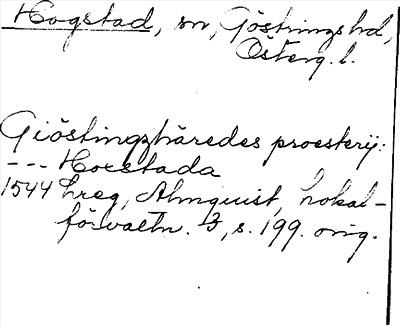 Hogstad, sn, Göstringshd,
Österg. l.
Giöstingzhäredes proesterij:
--- Hoestada
1544 hreg, Almquist, Lokal-
förvaltn. 3, s. 199. orig.